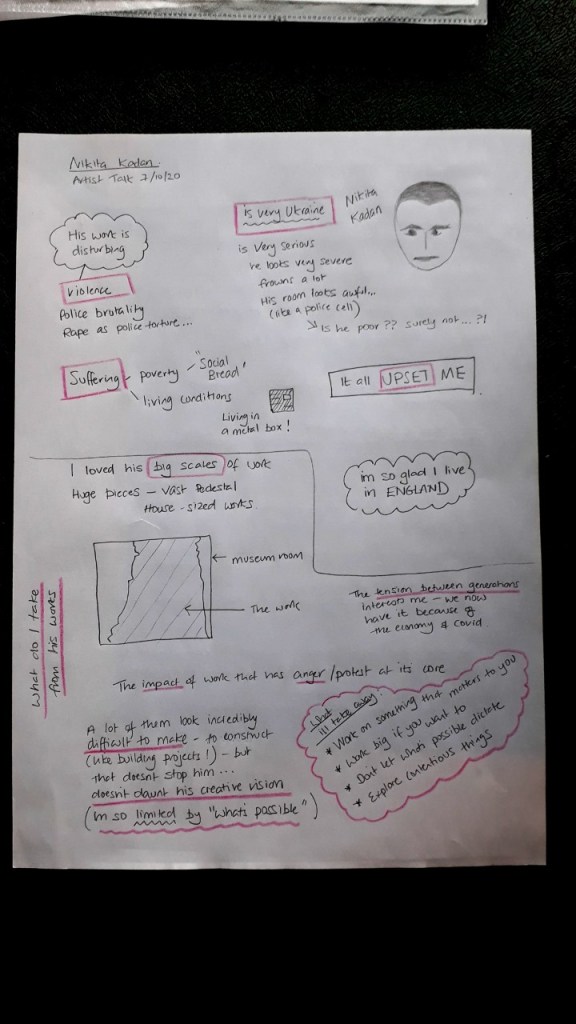 Nikita Kadan.
Artist Talk 7/10/20
His work is
disturbing
violence
Police brutality
Rape as police torture...
is very Ukraine
Nikita
Kadan
is very serious
he looks very severe
frowns a lot
His room looks awful...
(like a police cell)
Is he poor?? surely not...?!
Suffering
poverty - "Social
Bread"
living conditions
Living in
a metal box!
It all UPSET ME
I loved his big scales of work
Huge pieces - vast Pedestal
House-sized works.
im so glad I live
in ENGLAND
museum room
The work
What do I take
from his works
The tension between generations
interests me - we now
have it because of
the economy & covid
The impact of work that has anger/protest at its core
A lot of them look incredibly
difficult to make - to construct
(like building projects!) - but
that doesnt stop him...
doesnt daunt his creative vision
(Im so limited by "whats possible")
What
ill take away:
* Work on something that matters to you
* Work big if you want to
* Dont let whats possible dictate
* Explore contentious things